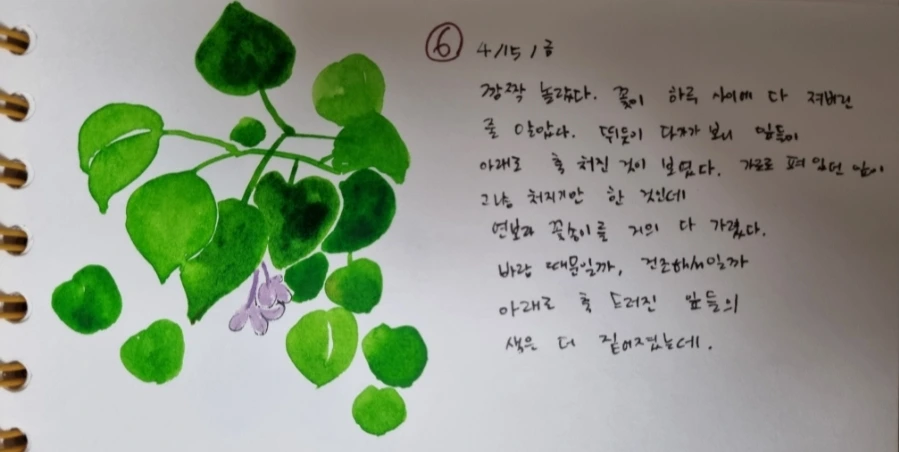 ⑥ 4/15/금
깜짝 놀랐다. 꽃이 하루 사이에 다 져버린
줄 알았다. 뛰듯이 다가가 보니 잎들이
아래로 축 처진 것이 보였다. 가로로 펴 있던 잎이
그냥 처지기만 한 것인데
연보라 꽃송이를 거의 다 가렸다.
바람 때문일까, 건조해서일까
아래로 축 드러진 잎들의
색은 더 짙어졌는데.